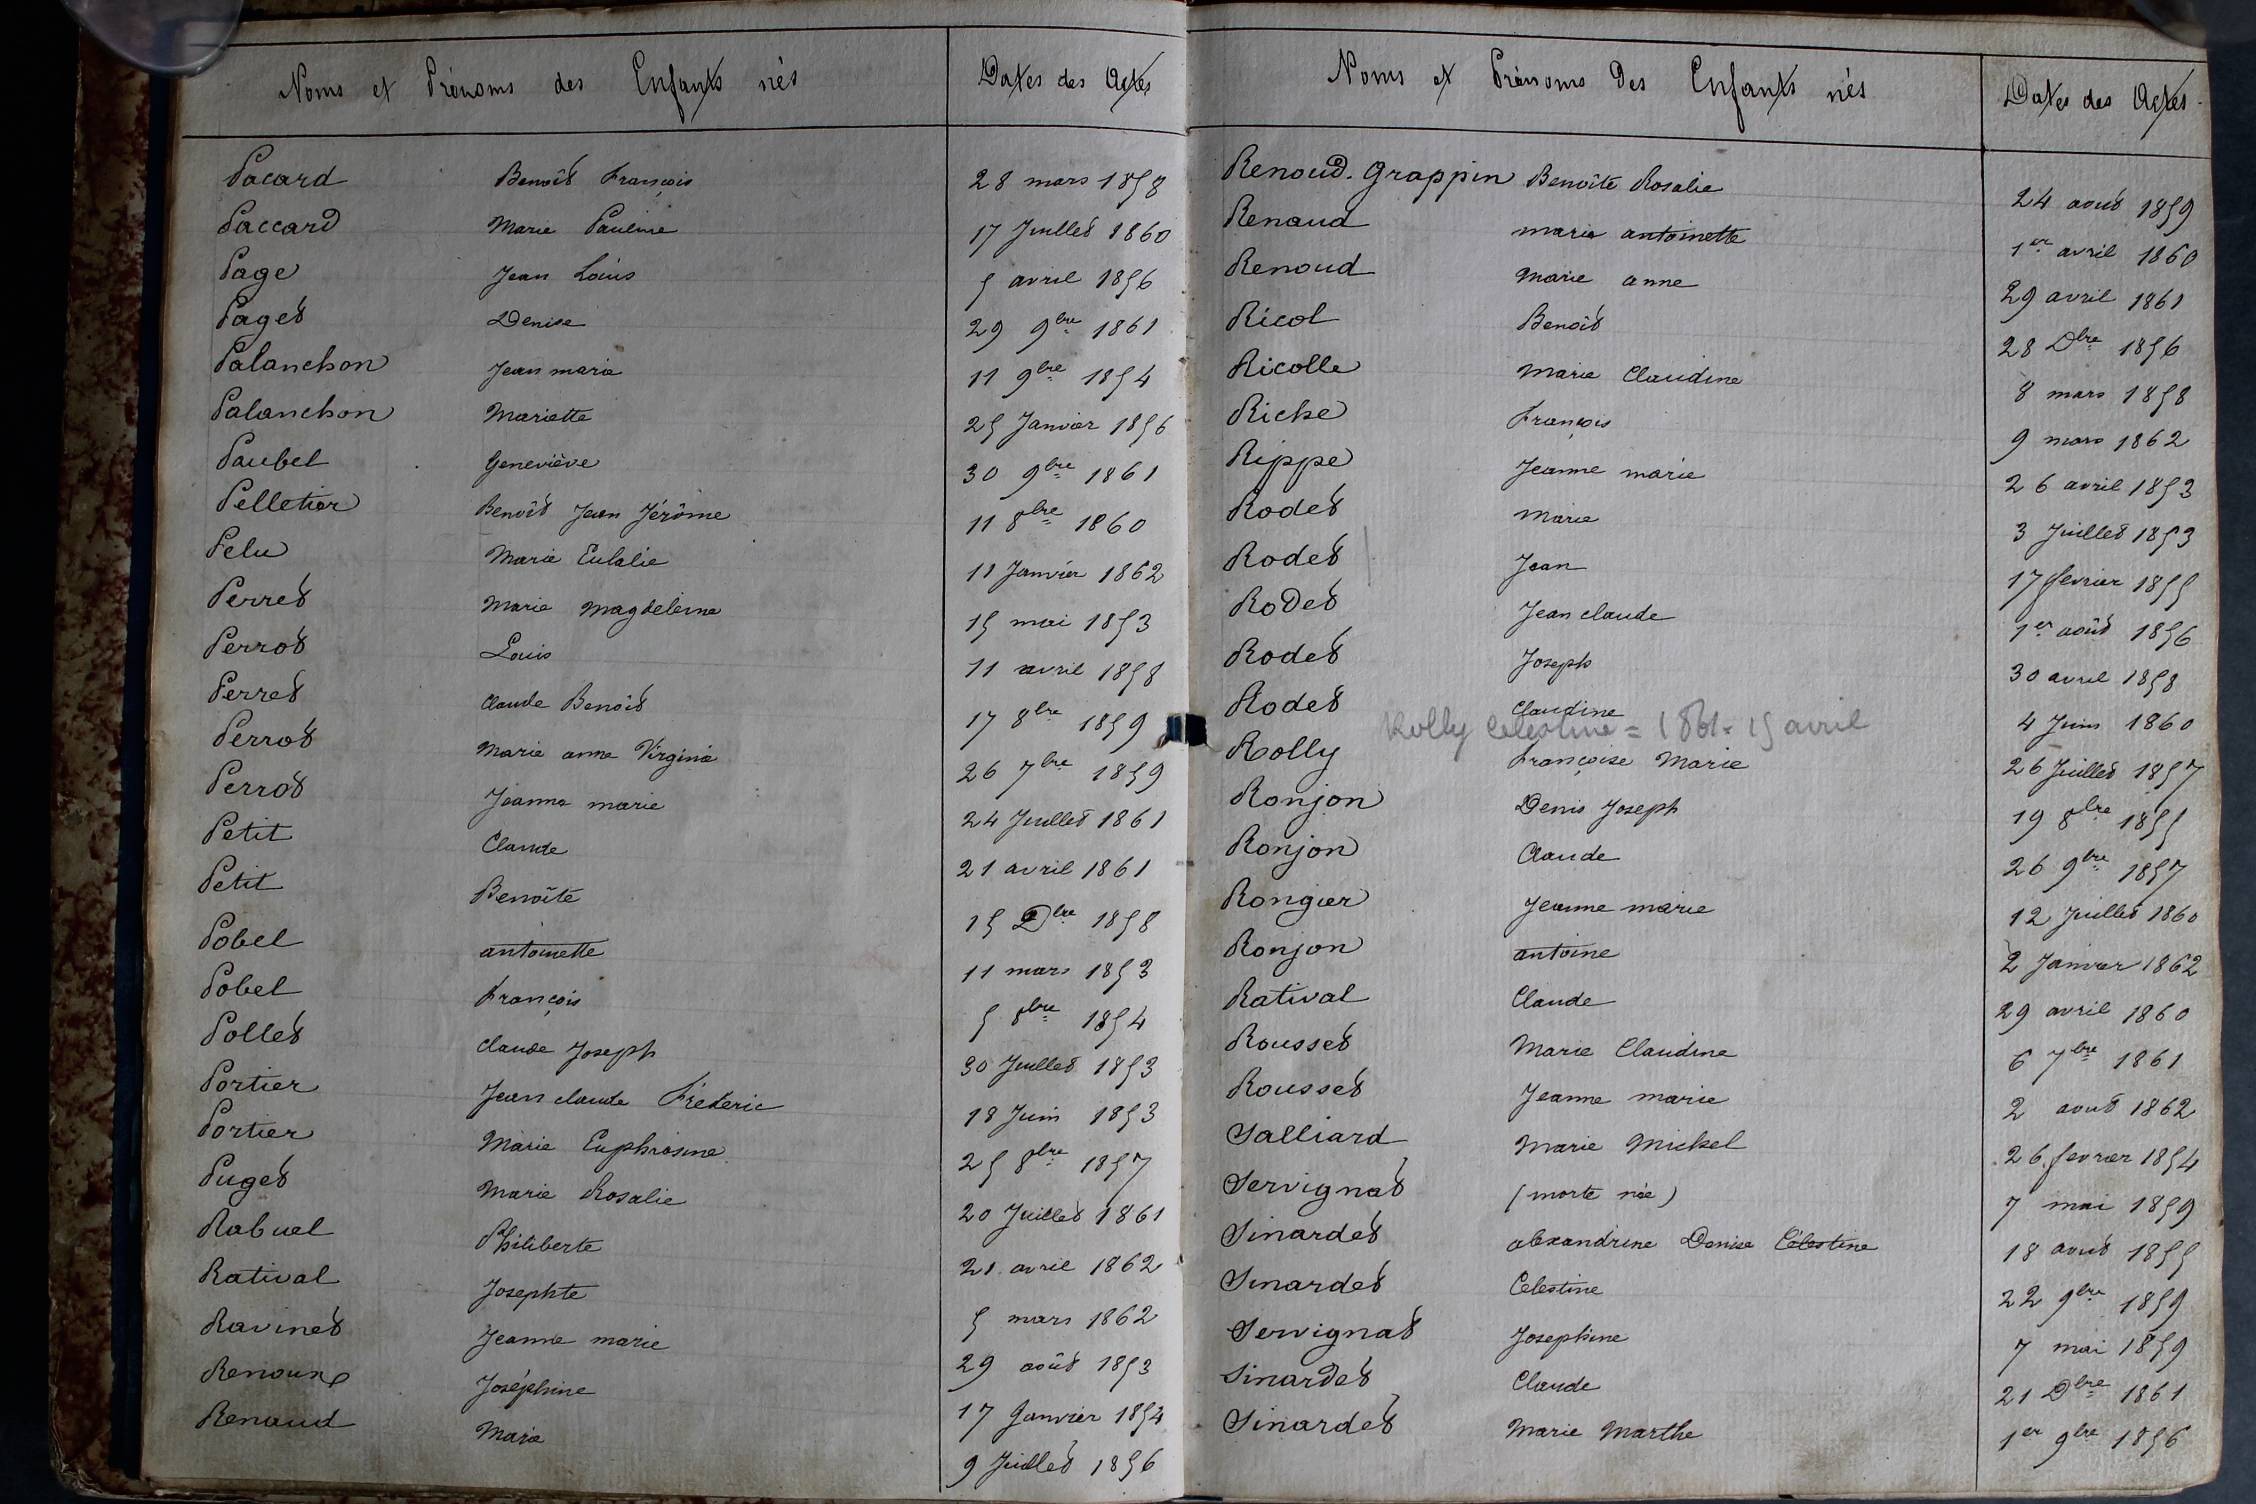 Noms et Prénoms des Enfants nés Dates des Actes
Pacard Benoît François 28 mars 1858
Paccard Marie Pauline 17 Juillet 1860
Page Jean Louis 5 avril 1856
Paget Denise 29 9bre 1861
Palanchon Jean marie 11 9bre 1854
Palanchon Mariette 25 Janvier 1856
Paubel Geneviève 30 9bre 1861
Pelletier Benoît Jean Jérôme 11 8bre 1860
Pelu Marie Eulalie 11 Janvier 1862
Perret Marie Magdeleine 15 mai 1853
Perrot Louis 11 avril 1858
Perret Claude Benoît 17 8bre 1859
Perrot Marie anne Virginie 26 7bre 1859
Perrot Jeanne marie 24 Juillet 1861
Petit Claude 21 avril 1861
Petit Benoîte 15 Dbre 1858
Pobel antoinette 11 mars 1853
Pobel François 5 8bre 1854
Pollet claude Joseph 30 Juillet 1853
Portier Jean claude Fréderic 18 Juin 1853
Portier Marie Euphrosine 25 8bre 1857
Puget Marie Rosalie 20 Juillet 1861
Rabuel Philiberte 21 avril 1862
Ratival Josephte 5 mars 1862
Ravinet Jeanne marie 29 août 1853
Renoux Joséphine 17 Janvier 1854
Renaud Marie 9 Juillet 1856
Noms et Prénoms Des Enfants nés Dates des Actes
Renoud-Grappin Benoîte Rosalie 24 aout 1859
Renaud marie antoinette 1er avril 1860
Renoud Marie anne 29 avril 1861
Ricol Benoît 28 Dbre 1856
Ricolle Marie Claudine 8 mars 1858
Riche François 9 mars 1862
Rippe Jeanne marie 26 avril 1853
Rodet Marie 3 Juillet 1853
Rodet Jean 17 fevrier 1855
Rodet Jean claude 1er août 1856
Rodet Joseph 30 avril 1858
Rodet Claudine 4 Juin 1860
Rolly Celestine = 1861 = 15 avril
Rolly Françoise Marie 26 Juillet 1857
Ronjon Denis Joseph 19 8bre 1855
Ronjon Claude 26 9bre 1857
Rongier Jeanne marie 12 Juillet 1860
Ronjon antoine 2 Janvier 1862
Ratival Claude 29 avril 1860
Rousset Marie Claudine 6 7bre 1861
Rousset Jeanne marie 2 aout 1862
Salliard Marie Michel 26 fevrier 1854
Servignat (morte née) 7 mai 1859
Sinardet alexandrine Denise Célestine 18 aout 1855
Sinardet Celestine 22 9bre 1859
Servignat Josephine 7 mai 1859
Sinardet Claude 21 Dbre 1861
Sinardet Marie Marthe 1er 9bre 1856